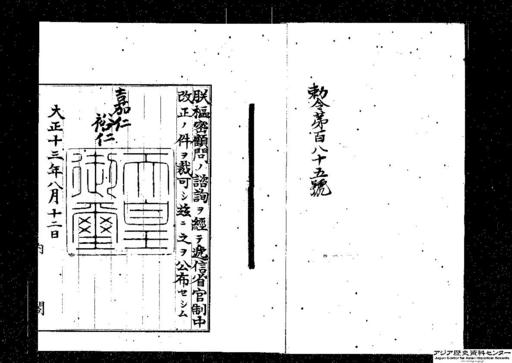 勅令第百八十五號
朕樞密顧問ノ諮詢ヲ經テ遞信省官制中
改正ノ件ヲ裁可シ茲ニ之ヲ公布セシム
嘉仁
裕仁
天皇
御璽
大正十三年八月十二日
内閣
アジア歴史資料センター
Japan Center for Asian Historical Records